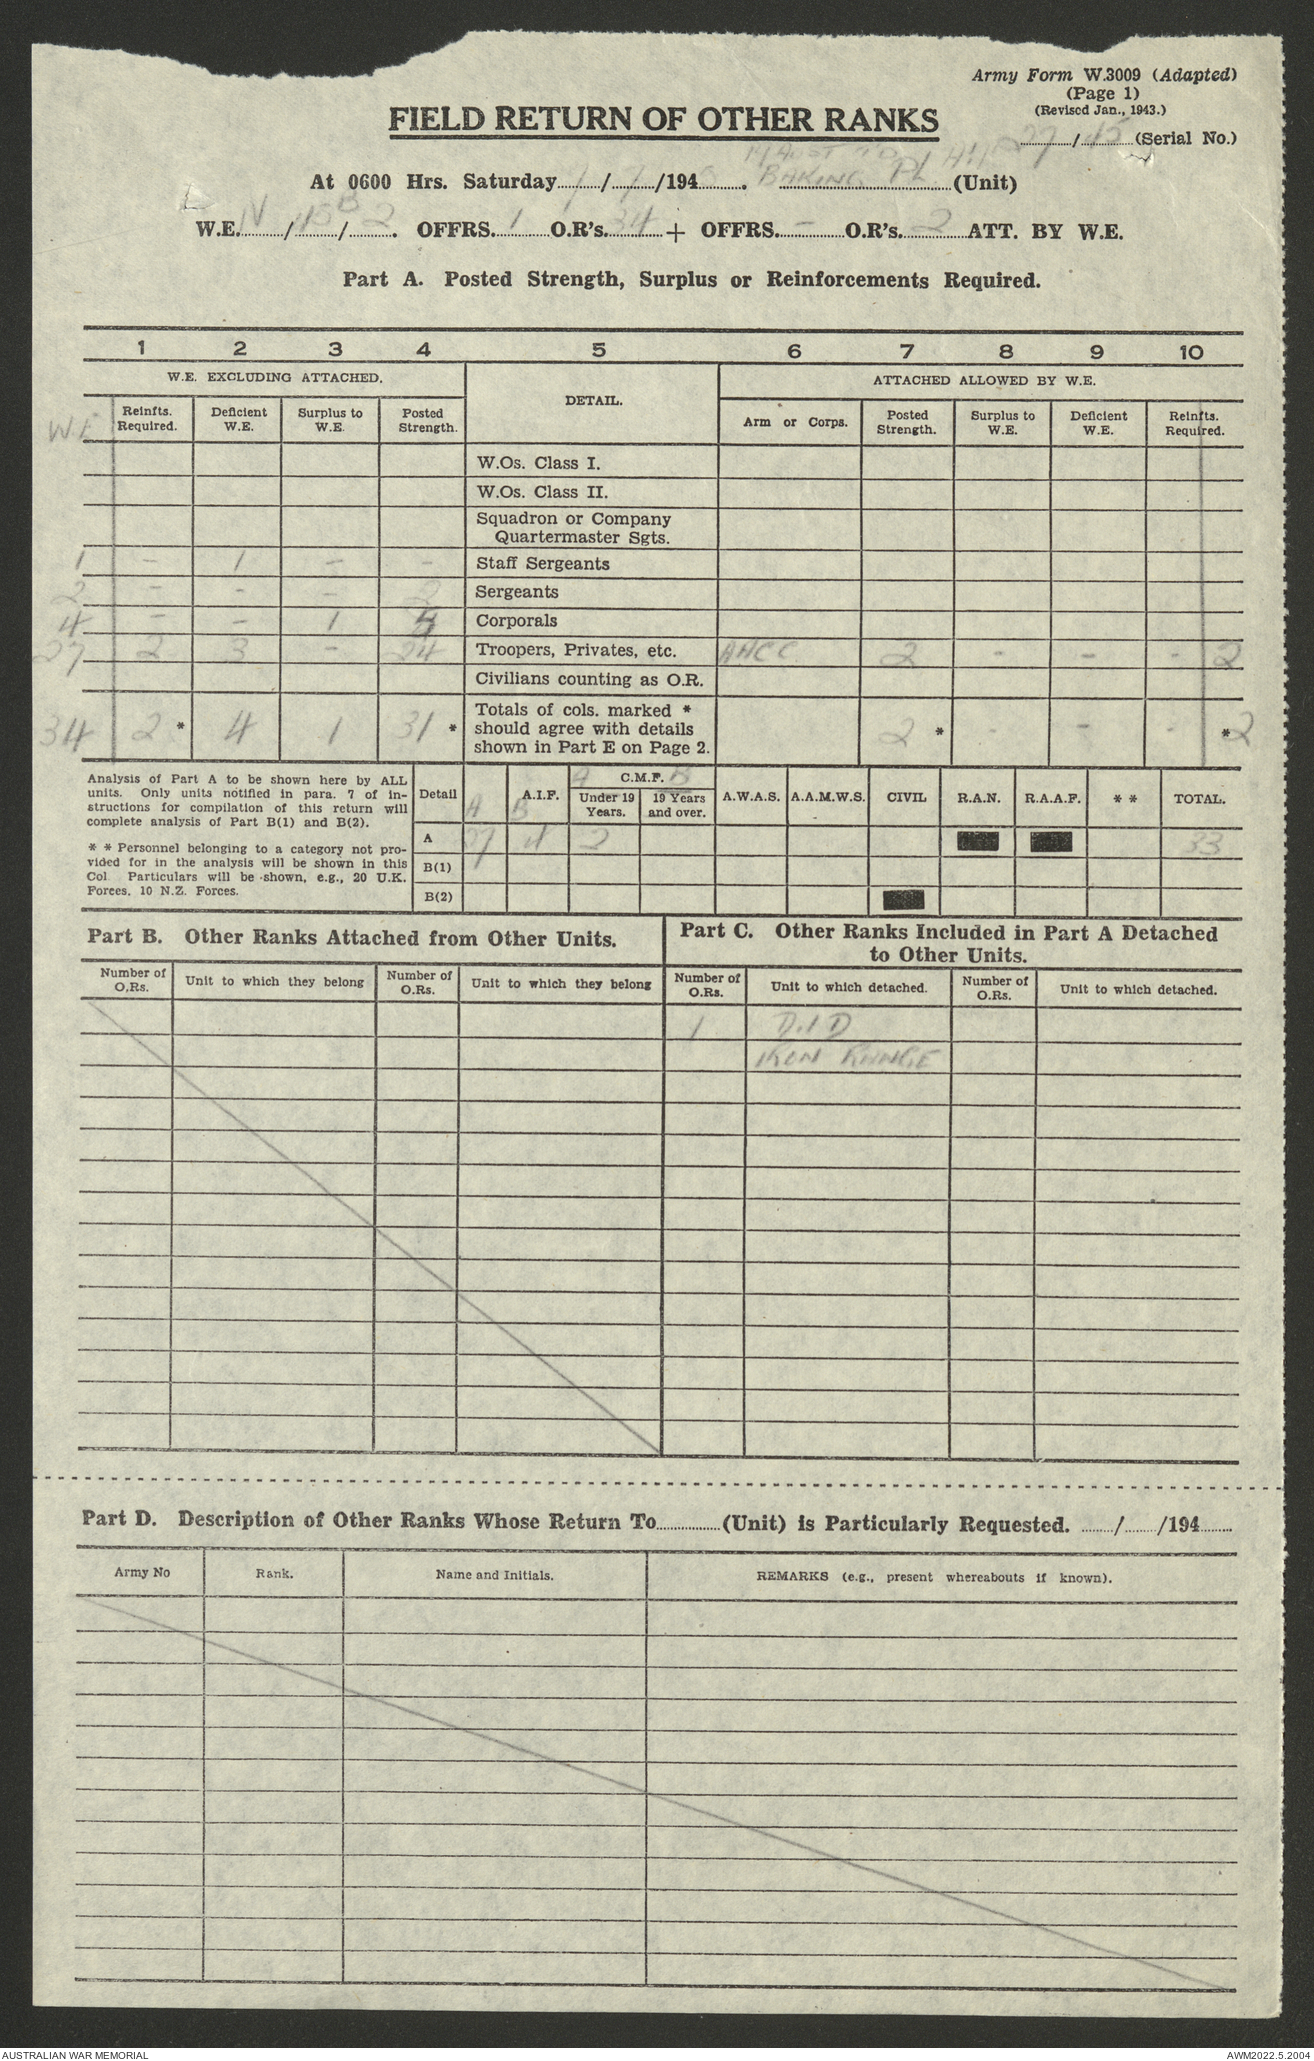 Army Form W.3009 (Adapted)
(Page 1)
(Revised Jan., 1943.)
FIELD RETURN OF OTHER RANKS
27/45 (Serial No.)
At 0600 Hrs. Saturday / /194 . BAKING PL (Unit)
W.E. / /2. OFFRS. 1 O.R's. 34 + OFFRS. - O.R's. 2 ATT. BY W.E.
Part A. Posted Strength, Surplus or Reinforcements Required.
1 2 3 4 5 6 7 8 9 10
W.E. EXCLUDING ATTACHED. DETAIL. ATTACHED ALLOWED BY W.E.
W.E Reinfts. Required. Deficient W.E. Surplus to W.E. Posted Strength. Arm or Corps. Posted Strength. Surplus to W.E. Deficient W.E. Reinfts. Required.
W.Os. Class I.
W.Os. Class II.
Squadron or Company
Quartermaster Sgts.
1 - 1 - - Staff Sergeants
2 - - - 2 Sergeants
4 - - 1 5 Corporals
27 2 3 - 24 Troopers, Privates, etc. AACC 2 - - - 2
Civilians counting as O.R.
34 2 * 4 1 31 * Totals of cols. marked * should agree with details shown in Part E on Page 2. 2 * - - - * 2
Analysis of Part A to be shown here by ALL
units. Only units notified in para. 7 of in-
structions for compilation of this return will
complete analysis of Part B(1) and B(2).
* * Personnel belonging to a category not pro-
vided for in the analysis will be shown in this
Col Particulars will be shown, e.g., 20 U.K.
Forces, 10 N.Z. Forces.
Detail A B A.I.F. A C.M.F. B Under 19 Years. 19 Years and over. A.W.A.S. A.A.M.W.S. CIVIL R.A.N. R.A.A.F. * * TOTAL.
A 27 4 2 33
B(1)
B(2)
Part B. Other Ranks Attached from Other Units.
Part C. Other Ranks Included in Part A Detached
to Other Units.
Number of O.Rs. Unit to which they belong Number of O.Rs. Unit to which they belong Number of O.Rs. Unit to which detached. Number of O.Rs. Unit to which detached.
1 D.I D
IRON RANGE
Part D. Description of Other Ranks Whose Return To (Unit) is Particularly Requested. / /194
Army No Rank. Name and Initials. REMARKS (e.g., present whereabouts if known).
AUSTRALIAN WAR MEMORIAL AWM2022.5.2004